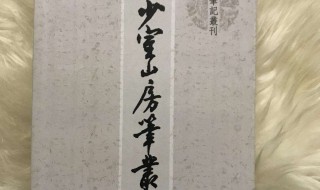 筆記叢刊
少室山房筆叢